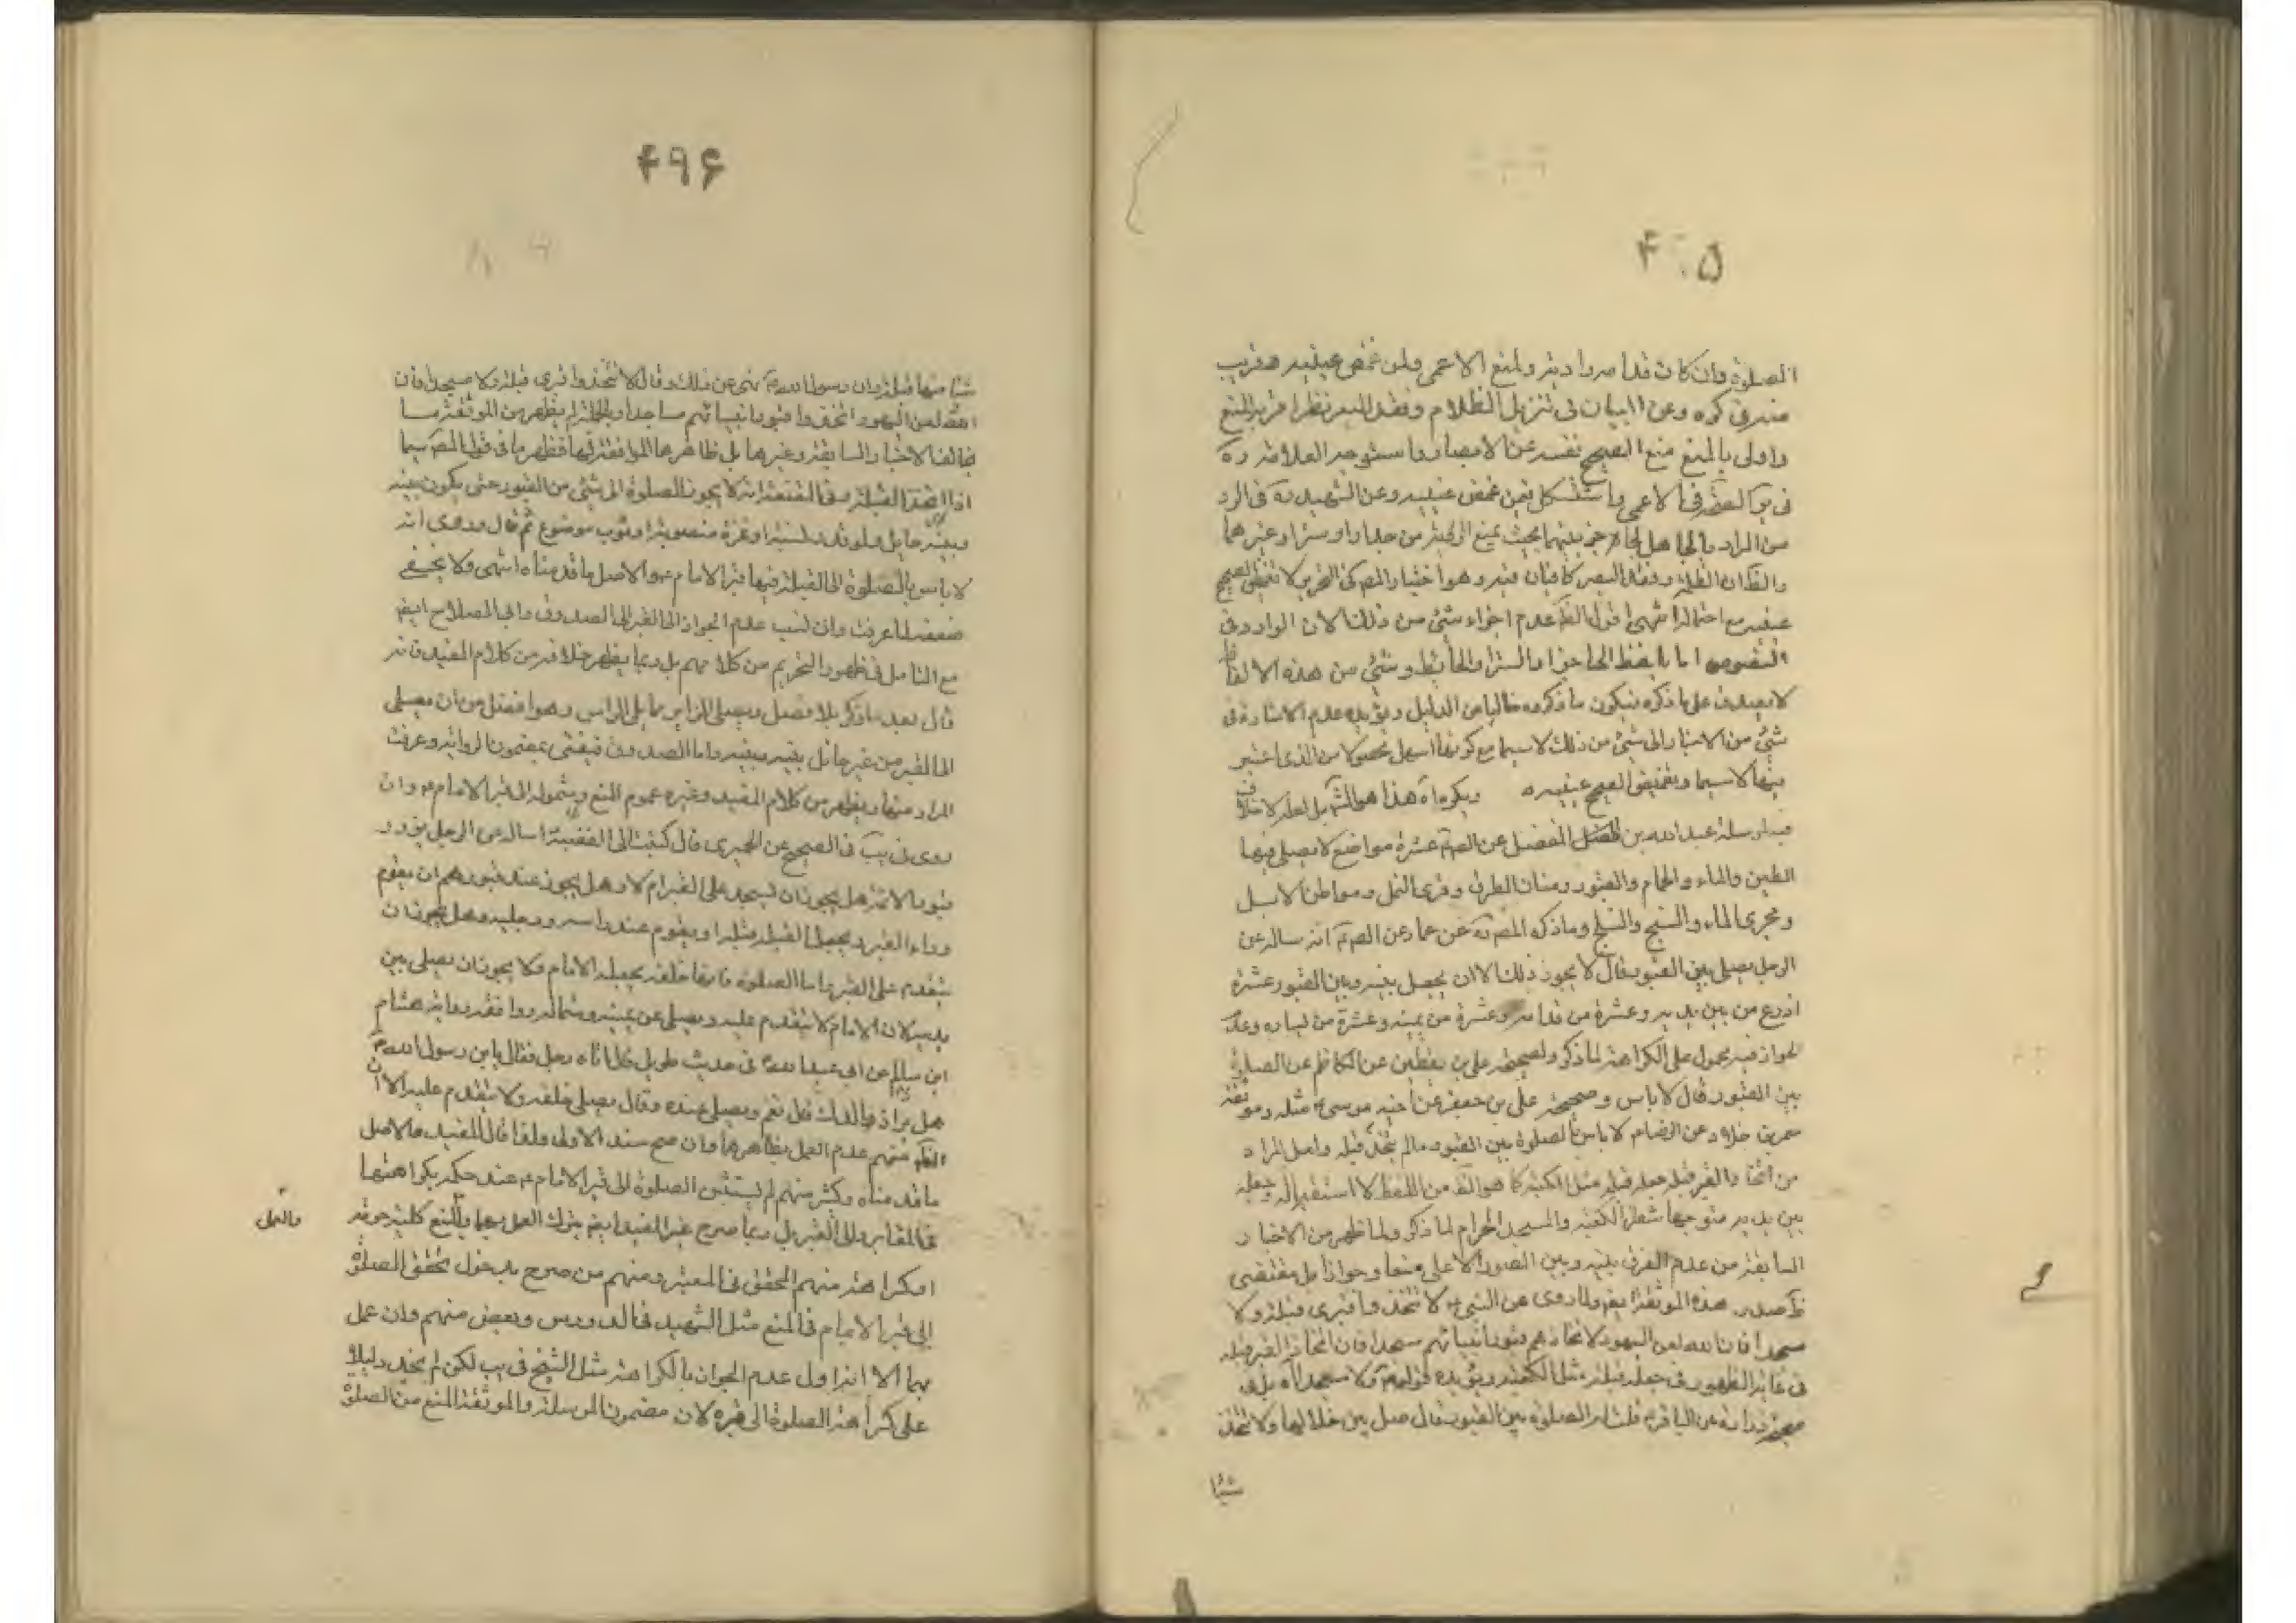 ۴۰۵
الصلوة وان كانت قدامه وا ديته ولمنع الاعمى ولمن غمض عينيه هو قريب
منه في كره وعن البيان في تنزيل الظلام وفقد البصر نظرا قرب المنع
واولى بالمنع منع الصحيح نفسه عن الابصار واستوجه العلامة ره
في الاعمى واستشكل فيمن غمض عينيه وعن الشهيد ره في الرد
من المراد بالحاجز بينهما بحيث يمنع الرؤية من جدار او ستر او غيرهما
والظ ان الظلمة وفقد البصر كافيان فيه وهو اختيار المص في التحرير لا تغميض الصحيح
عينيه مع احتماله انتهى اقول الظ عدم اجزاء شئ من ذلك لان الوارد في
النصوص اما بلفظ الحاجز او الستر او الحائط وشئ من هذه الالفاظ
لا يصدق على ما ذكره فيكون ما ذكروه خاليا من الدليل ويؤيده عدم الاشارة في
شئ من الاخبار الى شئ من ذلك لا سيما مع كونها اسهل حصولا من الذي اعتبر
فيها لا سيما وتغميض الصحيح عينيه ويكره اه هذا هو المشهور بل لعله لا خلاف
فيه لمرسلة عبد الله بن الفضل عن الصم عشرة مواضع لا يصلى فيها
الطين والماء والحمام والقبور ومسان الطرق وقرى النمل ومواطن الابل
ومجرى الماء والسبخ والثلج وما ذكره المص ره عن عمار عن الصم انه ساله عن
الرجل يصلى بين القبور قال لا يجوز ذلك الا ان يجعل بينه وبين القبور عشرة
اذرع من بين يديه وعشرة من خلفه وعشرة من يمينه وعشرة من يساره وعدم
الجواز فيه محمول على الكراهة لما ذكر ولصحيحة علي بن يقطين عن الكاظم عن الصلوة
بين القبور قال لا باس وصحيحة علي بن جعفر عن اخيه موسى مثله وموثقة
معمر بن خلاد عن الرضام لا باس بالصلوة بين القبور ما لم يتخذ قبلة ولعل المراد
من اتخاذ القبر قبلة جعله قبلة مثل الكعبة كما هو الظ من اللفظ لا استقباله وجعله
بين يديه متوجها شطر الكعبة والمسجد الحرام لما ذكر ولما ظهر من الاخبار
السابقة من عدم الفرق بينه وبين الصور الاعلى منها وجوازا بل مقتضى
ظ صدر هذه الموثقة ايضا ولما روى عن النبي لا تتخذوا قبرى قبلة ولا
مسجدا فان الله لعن اليهود لاتخاذهم قبور انبيائهم مسجدا فان اتخاذ القبر قبلة
في غاية الظهور في جعله قبلة مثل الكعبة ويؤيده قوله ولا مسجدا اه بل في
صحيحة زرارة عن الباقرم قلت له الصلوة بين القبور قال صل بين خلالها ولا تتخذ
شيئا
۴۹۶
شيئا منها قبلة وان رسول الله نهى عن ذلك وقال لا تتخذوا قبري قبلة ولا مسجدا فان
الله لعن اليهود اتخذوا قبور انبيائهم مساجد او بالجملة لم يظهر من الموثقة ما
يخالف الاخبار السابقة وغيرها بل ظاهرها الموافقة فيها فظهر ما في قول المص سيما
اذا اتخذ القبلة وفي المقنعة انه لا يجوز الصلوة الى شئ من القبور حتى يكون بينه
وبينه حايل ولو قدر لبنة او عنزة منصوبة او ثوب موضوع ثم قال وروى انه
لا باس بالصلوة الى القبلة فيها قبر الامام والاصل ما قدمناه انتهى ولا يخفى
ضعفه لما عرفت وان نسب عدم الجواز الى القبر الى الصدوق وابى الصلاح ايضا
مع التامل في ظهور التحريم من كلامهم بل ربما يظهر خلافه من كلام المفيد فانه
قال بعد ما ذكر بلا فصل ويصلى الزاير مما يلى الراس وهو افضل من ان يصلى
الى القبر من غير حائل بينه وبينه واما الصدوق فيفتى بمضمون الرواية وعرفت
المراد منها ويظهر من كلام المفيد وغيره عموم المنع وشموله الى قبر الامام وان
روى في يب في الصحيح عن الحميرى قال كتبت الى الفقيه اساله عن الرجل يزور
قبور الائمة هل يجوز ان يسجد على القبر ام لا وهل يجوز عند قبورهم ان يقوم
وراء القبر ويجعل القبر قبلة او يقوم عند راسه ورجليه وهل يجوز ان
يتقدم على القبر اما الصلوة فانها خلفه يجعله الامام ولا يجوز ان يصلى بين
يديه لان الامام لا يتقدم عليه ويصلى عن يمينه وشماله ووافقه رواية هشام
ابن سالم عن ابى عبد الله في حديث طويل قال اتاه رجل فقال يابن رسول الله
هل يزار والدك قال نعم ويصلى عنده وقال يصلى خلفه ولا يتقدم عليه الا ان
الظ منهم عدم العمل بظاهرها وان صح سند الاولى ولذا قال المفيد والاصل
ما قدمناه وكثير منهم لم يستثن الصلوة الى قبر الامام عند حكمه بكراهتها
في المقابر والى القبر بل ربما صرح غير المفيد ايضا بترك العمل بهما والمنع كلية حرمة
والعمل
او كراهة منهم المحقق في المعتبر ومنهم من صرح بدخول تحقق الصلوة
الى قبر الامام في المنع مثل الشهيد في الدروس وبعض منهم وان عمل
بهما الا انه اول عدم الجواز بالكراهة مثل الشيخ في يب لكن لم نجد دليلا
على كراهة الصلوة الى قبره لان مضمون المرسلة والموثقة المنع من الصلوة